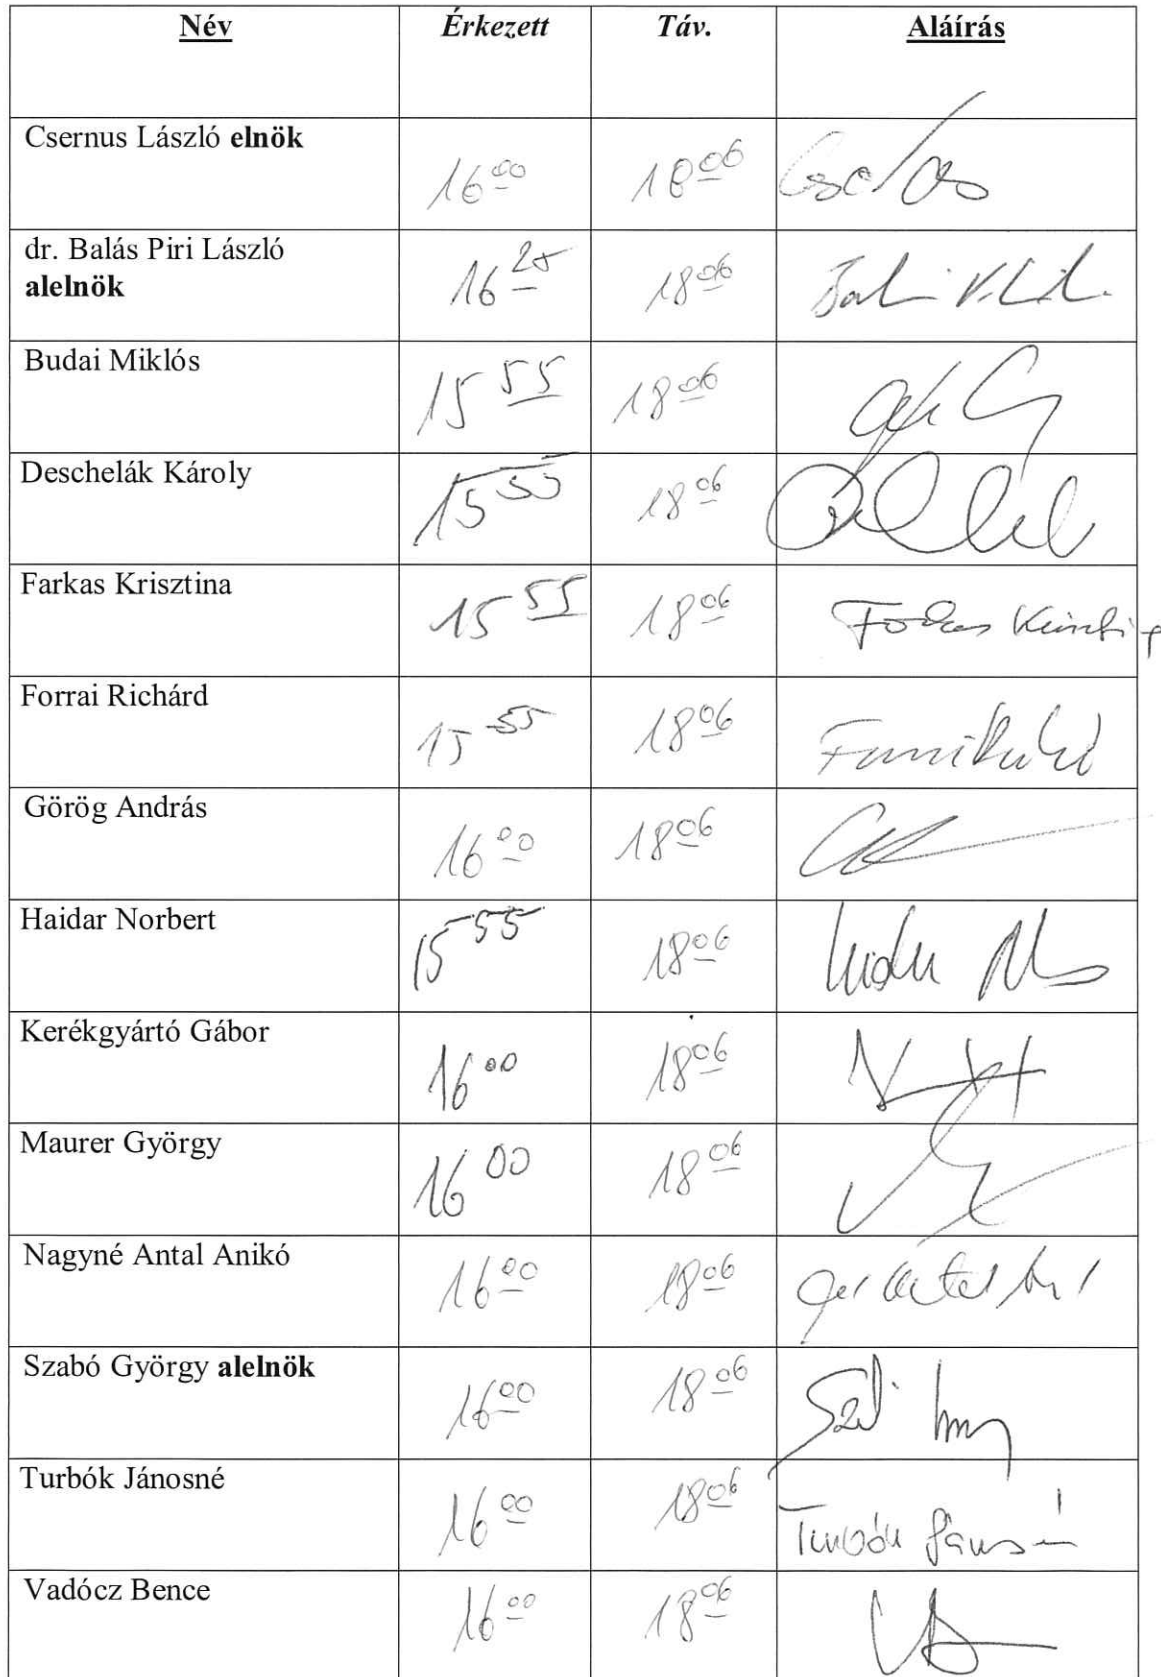 Név Érkezett Táv. Aláírás
Csernus László elnök 16 00 18 06
dr. Balás Piri László 16 25 18 06
alelnök
Budai Miklós 15 55 18 06
Deschelák Károly 15 55 18 06
Farkas Krisztina 15 55 18 06 Farkas Krisztina
Forrai Richárd 15 55 18 06
Görög András 16 00 18 06
Haidar Norbert 15 55 18 06
Kerékgyártó Gábor 16 00 18 06
Maurer György 16 00 18 06
Nagyné Antal Anikó 16 00 18 06
Szabó György alelnök 16 00 18 06
Turbók Jánosné 16 00 18 06 Turbók Jánosné
Vadócz Bence 16 00 18 06